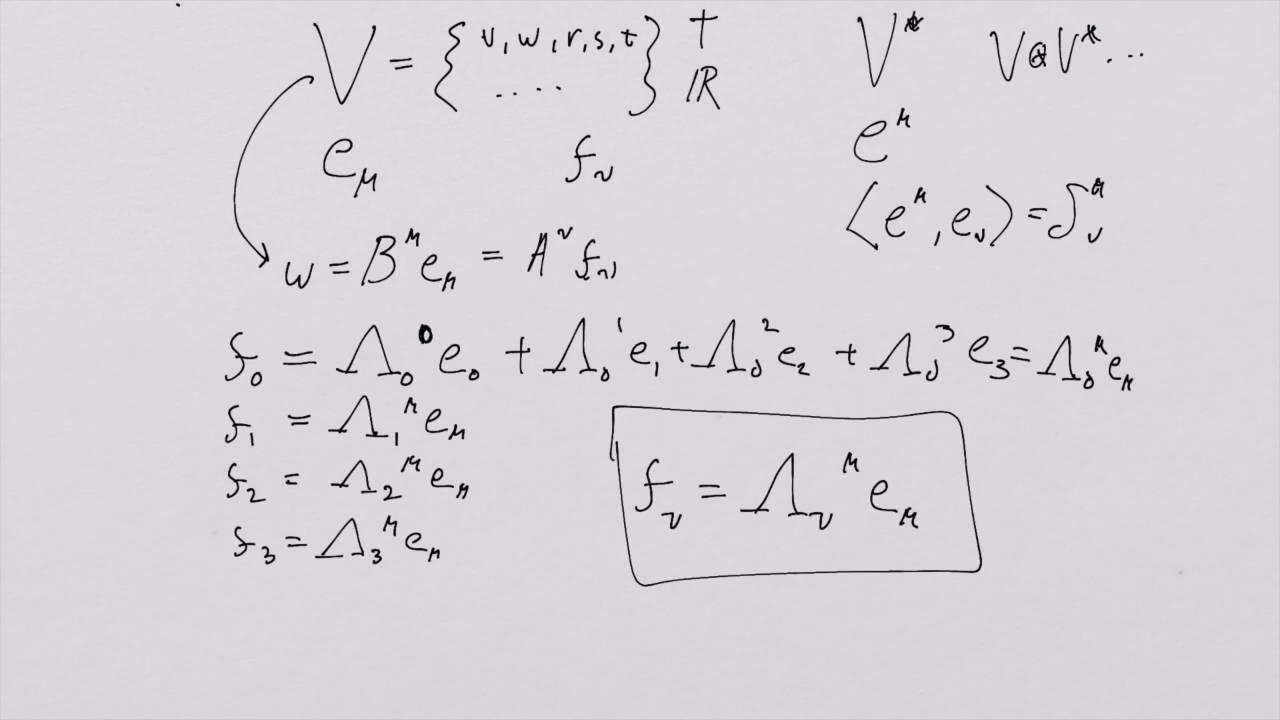 V = { v, w, r, s, t .... } + ℝ V* V⊗V* ...
e_μ f_ν e^μ
⟨e^μ, e_ν⟩ = δ^μ_ν
w = B^μ e_μ = A^ν f_ν
f_0 = Λ_0^0 e_0 + Λ_0^1 e_1 + Λ_0^2 e_2 + Λ_0^3 e_3 = Λ_0^μ e_μ
f_1 = Λ_1^μ e_μ
f_2 = Λ_2^μ e_μ
f_ν = Λ_ν^μ e_μ
f_3 = Λ_3^μ e_μ